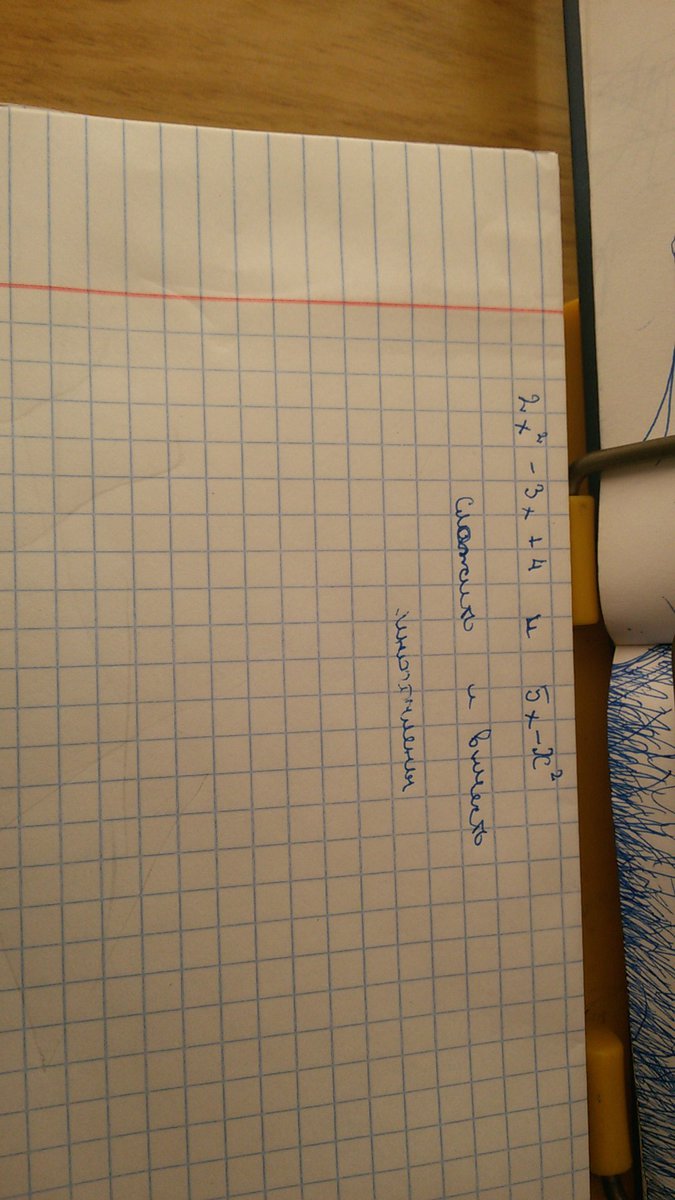 2x² - 3x + 4 и 5x - x²
сложить и вычесть
многочлены